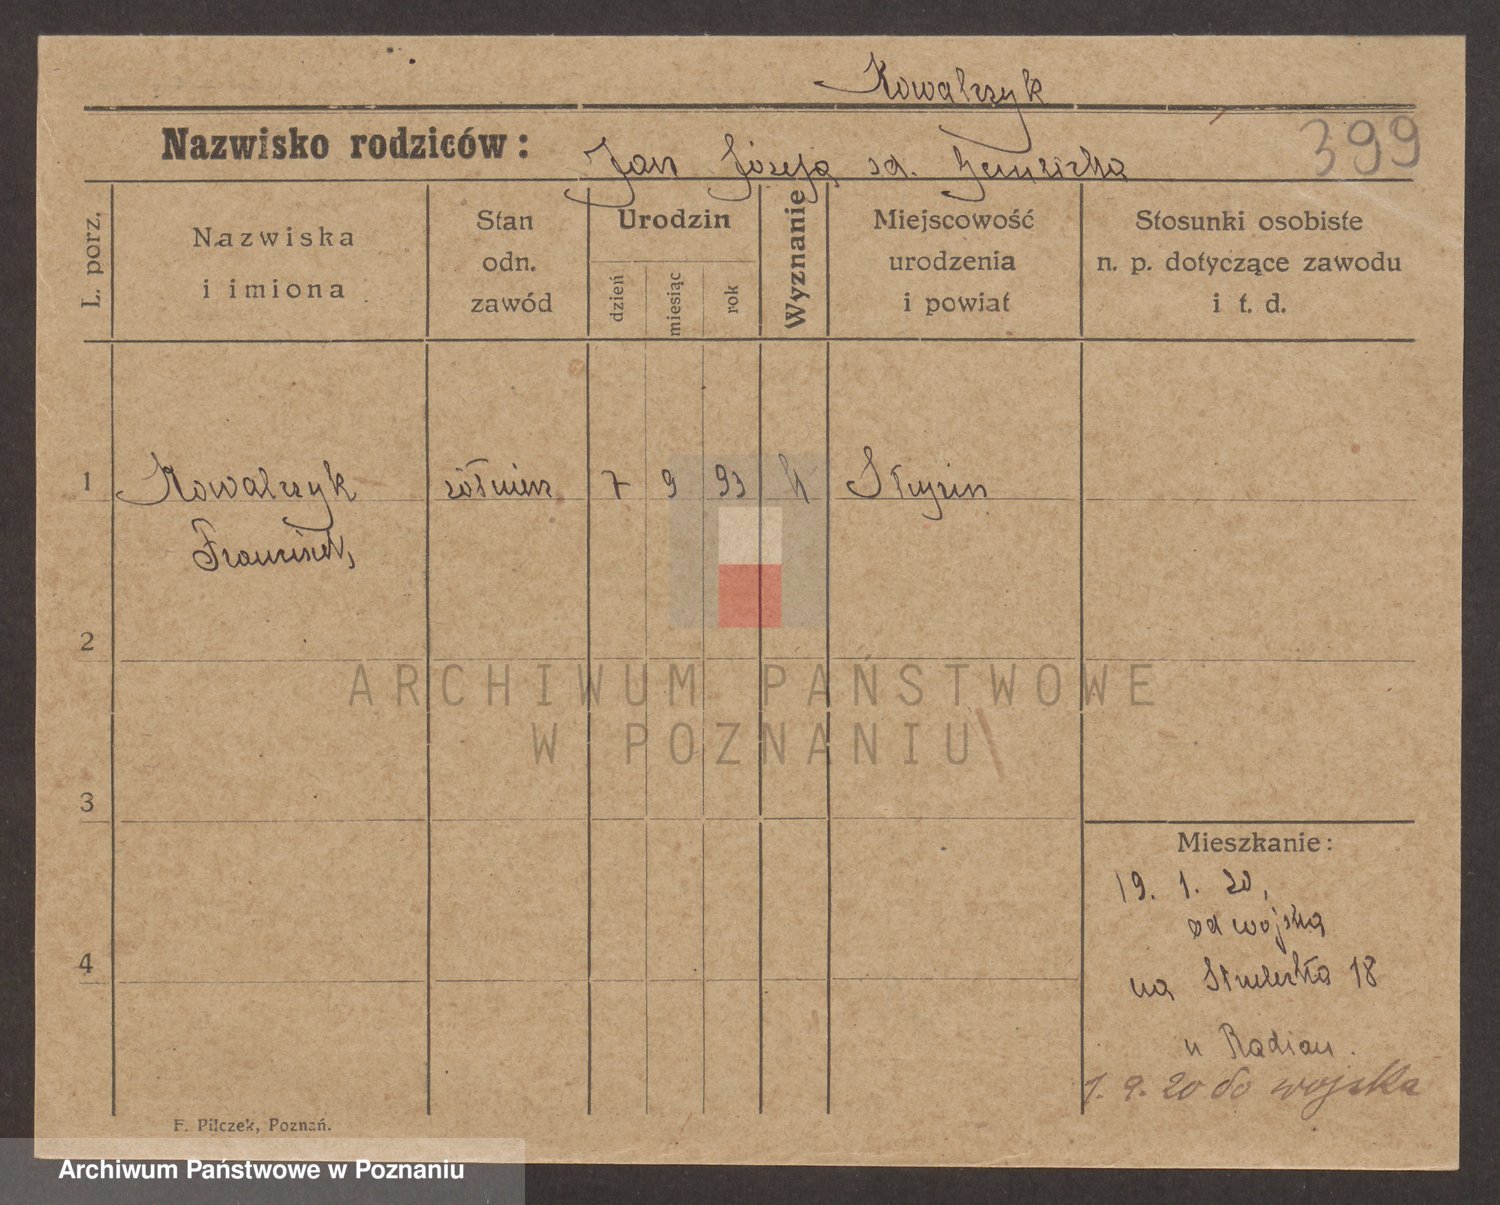 Kowalczyk
Nazwisko rodziców:
Jan Józefa zd.
399
L. porz.
Nazwiska
i imiona
Stan
odn.
zawód
Urodzin
dzień
miesiąc
rok
Wyznanie
Miejscowość
urodzenia
i powiat
Stosunki osobiste
n. p. dotyczące zawodu
i t. d.
1
Kowalczyk żółnierz 7 9 93 k
Franciszek
2
ARCHIWUM PAŃSTWOWE
W POZNANIU
3
Mieszkanie:
19. 1. 20,
od wojska
na 18
u
4
1. 9. 20 do wojska
F. Pilczek, Poznań.
Archiwum Państwowe w Poznaniu